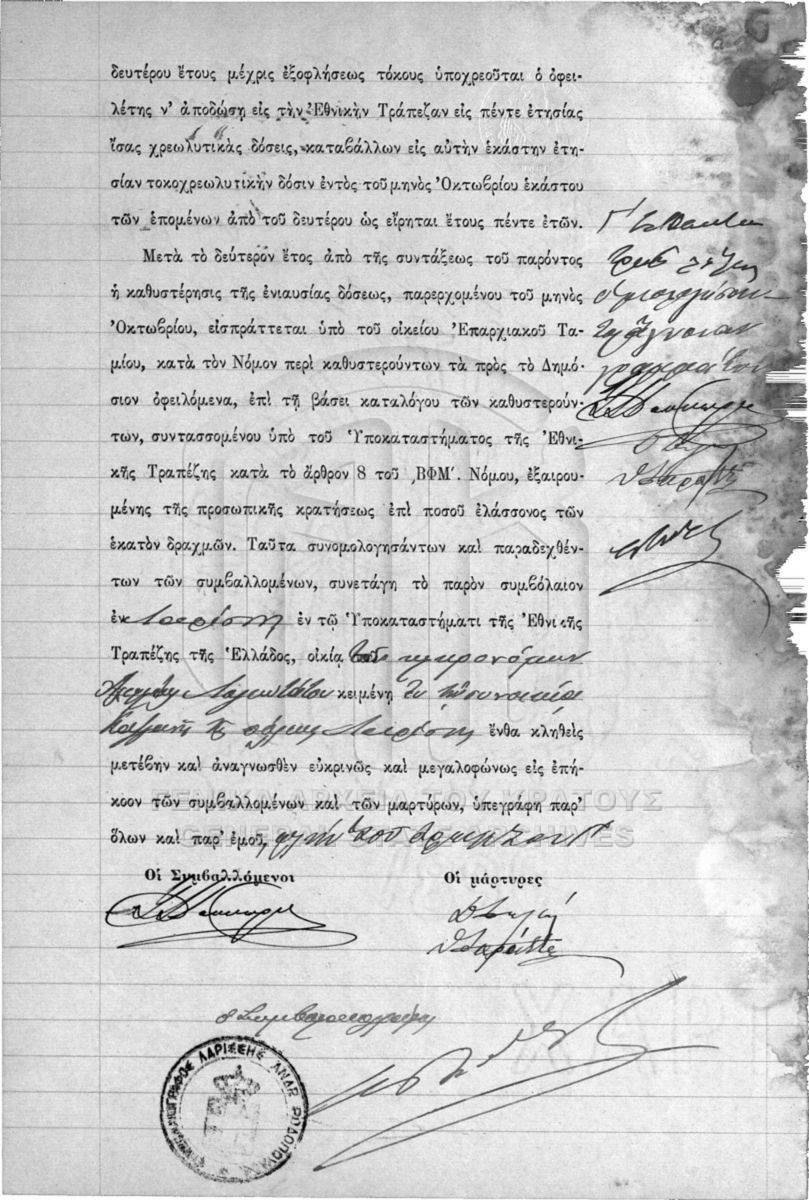 δευτέρου ἔτους μέχρις ἐξοφλήσεως τόκους ὑποχρεοῦται ὁ ὀφει-
λέτης ν' ἀποδώσῃ εἰς τὴν Ἐθνικὴν Τράπεζαν εἰς πέντε ἐτησίας
ἴσας χρεωλυτικὰς δόσεις, καταβάλλων εἰς αὐτὴν ἑκάστην ἐτη-
σίαν τοκοχρεωλυτικὴν δόσιν ἐντὸς τοῦ μηνὸς Ὀκτωβρίου ἑκάστου
τῶν ἑπομένων ἀπὸ τοῦ δευτέρου ὡς εἴρηται ἔτους πέντε ἐτῶν.
Μετὰ τὸ δεύτερον ἔτος ἀπὸ τῆς συντάξεως τοῦ παρόντος
ἡ καθυστέρησις τῆς ἐνιαυσίας δόσεως, παρερχομένου τοῦ μηνὸς
Ὀκτωβρίου, εἰσπράττεται ὑπὸ τοῦ οἰκείου Ἐπαρχιακοῦ Τα-
μίου, κατὰ τὸν Νόμον περὶ καθυστερούντων τὰ πρὸς τὸ Δημό-
σιον ὀφειλόμενα, ἐπὶ τῇ βάσει καταλόγου τῶν καθυστερούν-
των, συντασσομένου ὑπὸ τοῦ Ὑποκαταστήματος τῆς Ἐθνι-
κῆς Τραπέζης κατὰ τὸ ἄρθρον 8 τοῦ ͵ΒΦΜ΄. Νόμου, ἐξαιρου-
μένης τῆς προσωπικῆς κρατήσεως ἐπὶ ποσοῦ ἐλάσσονος τῶν
ἑκατὸν δραχμῶν. Ταῦτα συνομολογησάντων καὶ παραδεχθέν-
των τῶν συμβαλλομένων, συνετάγη τὸ παρὸν συμβόλαιον
ἐν Λαρίσῃ ἐν τῷ Ὑποκαταστήματι τῆς Ἐθνικῆς
Τραπέζης τῆς Ἑλλάδος, οἰκίᾳ κληρονόμων
κειμένῃ συνοικίᾳ
πόλεως Λαρίσης ἔνθα κληθεὶς
μετέβην καὶ ἀναγνωσθὲν εὐκρινῶς καὶ μεγαλοφώνως εἰς ἐπή-
κοον τῶν συμβαλλομένων καὶ τῶν μαρτύρων, ὑπεγράφη παρ'
ὅλων καὶ παρ' ἐμοῦ,
τρεῖς λέξεις
ἄγνοιαν
γραμμάτων
ΓΕΝΙΚΑ ΑΡΧΕΙΑ ΤΟΥ ΚΡΑΤΟΥΣ
Οἱ Συμβαλλόμενοι Οἱ μάρτυρες
ὁ Συμβολαιογράφος
ΣΥΜΒΟΛΑΙΟΓΡΑΦΟΣ ΛΑΡΙΣΣΗΣ ΑΝΔΡ ΡΟΔΟΠΟΥΛΟΣ